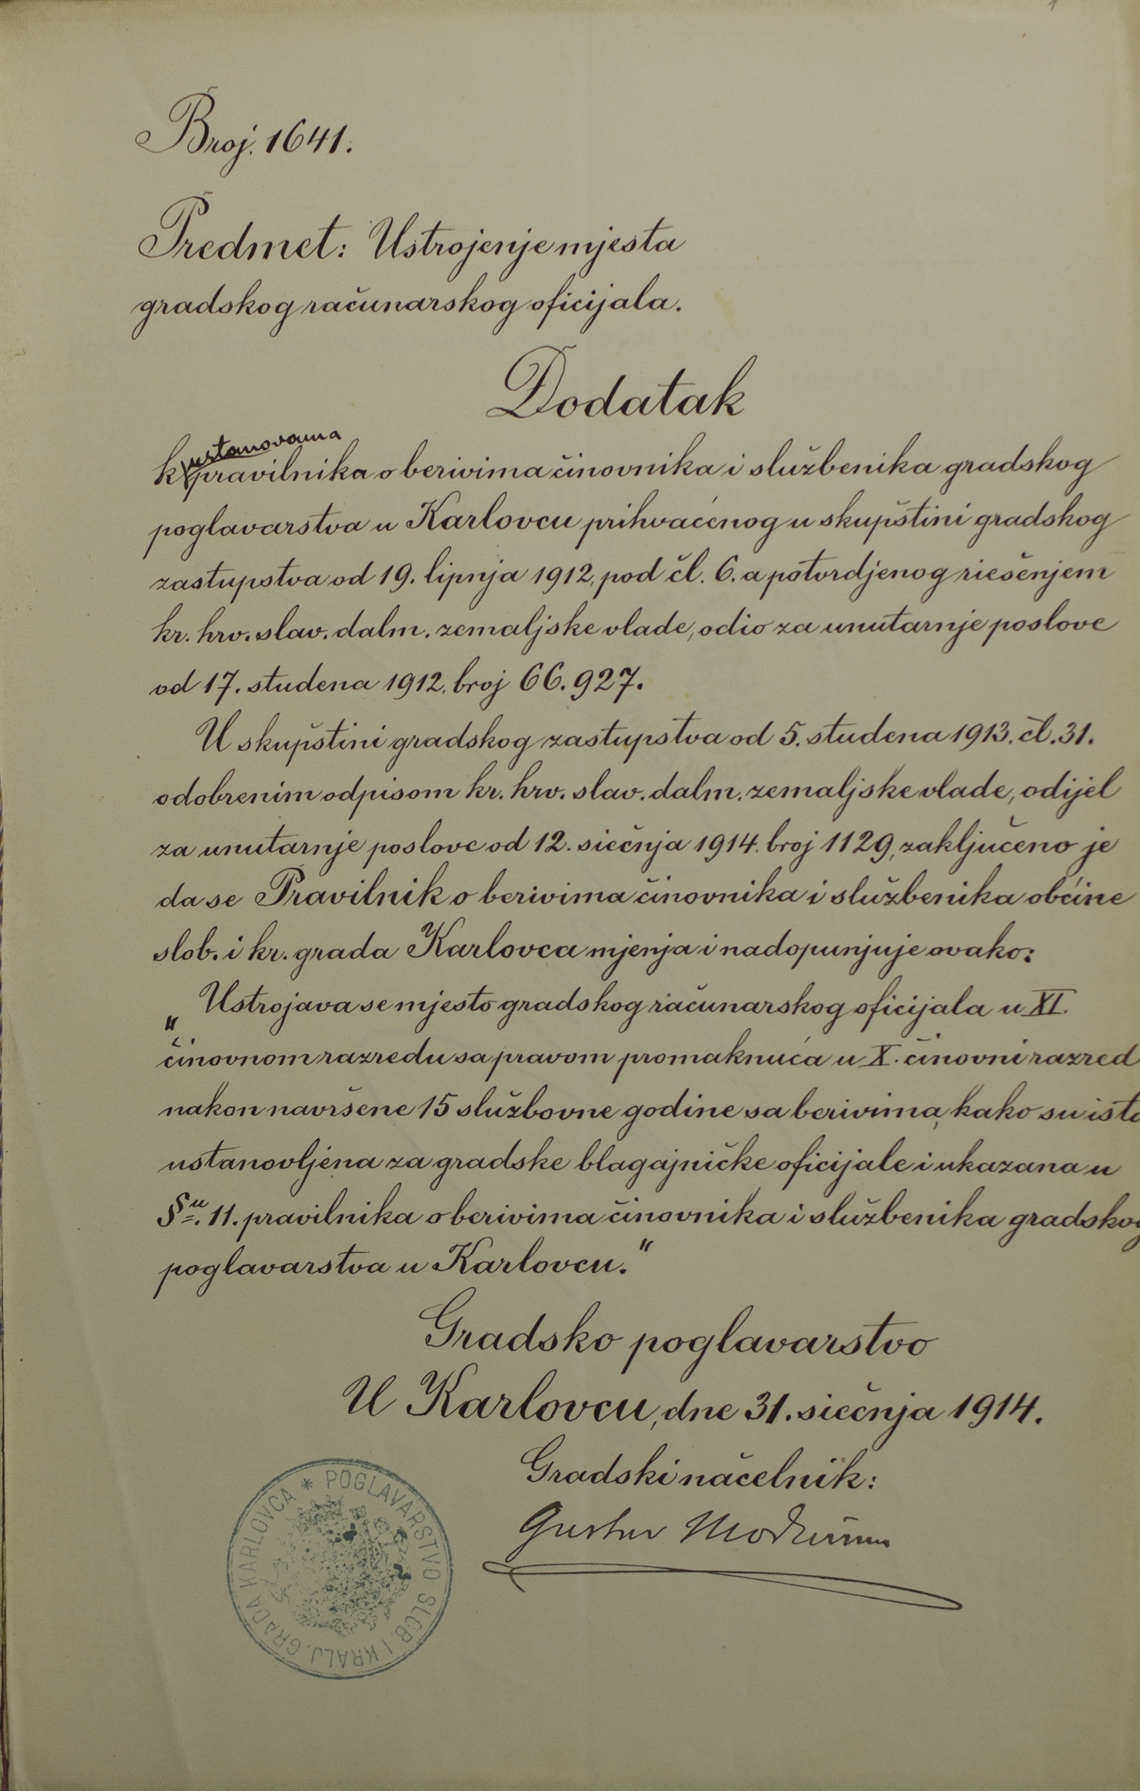 Broj. 1641.
Predmet: Ustrojenje mjesta
gradskog računarskog oficijala.
Dodatak
k ustanovama pravilnika o berivima činovnika i službenika gradskog
poglavarstva u Karlovcu prihvaćenog u skupštini gradskog
zastupstva od 19. lipnja 1912, pod čl. 6. a potvrdjenog riešenjem
kr. hrv. slav. dalm. zemaljske vlade, odio za unutarnje poslove
od 17. studena 1912. broj 66.927.
U skupštini gradskog zastupstva od 5. studena 1913. čl. 31.
odobrenim odpisom kr. hrv. slav. dalm. zemaljske vlade, odijel
za unutarnje poslove od 12. siečnja 1914. broj 1129, zaključeno je
da se Pravilnik o berivima činovnika i službenika obćine
slob. i kr. grada Karlovca mjenja i nadopunjuje ovako:
„Ustrojava se mjesto gradskog računarskog oficijala u XI.
činovnom razredu sa pravom promaknuća u X. činovni razred
nakon navršene 15 službovne godine sa berivima, kako su ista
ustanovljena za gradske blagajničke oficijale i ukazana u
§u. 11. pravilnika o berivima činovnika i službenika gradskog
poglavarstva u Karlovcu.“
Gradsko poglavarstvo
U Karlovcu, dne 31. siečnja 1914.
Gradski načelnik:
Gustav Modrušan
POGLAVARSTVO SLOB. I KRALJ. GRADA KARLOVCA *